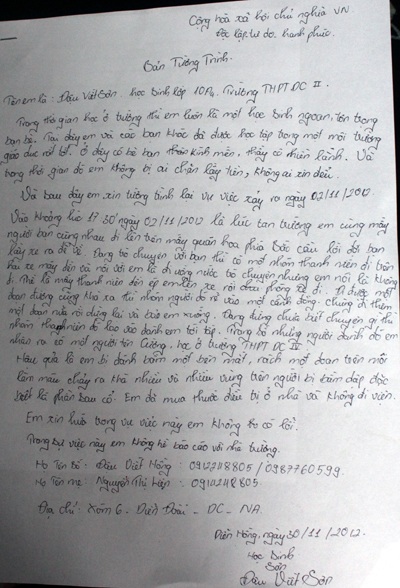 Cộng hoà xã hội chủ nghĩa VN.
Độc lập tự do. hạnh phúc.
Bản Tường Trình.
Tên em là: Đậu Viết Sơn. học sinh lớp 10A4. Trường THPT DC II.
Trong thời gian học ở trường thì em luôn là một học sinh ngoan, tôn trọng
bạn bè. Tại đây em và các bạn khác đã được học tập trong một môi trường
giáo dục rất tốt. ở đây có bè bạn thân kính mến. thầy cô hiền lành. Và
trong thời gian đó em không bị ai chặn lấy tiền, không ai xin đểu.
Và sau đây em xin tường trình lại vụ việc xảy ra ngày 02/11/2012.
Vào khoảng lúc 17 30 ngày 02/11/2012 là lúc tan trường em cùng mấy
người bạn cùng nhau đi lên trên mấy quán hoa phía Bắc cầu lồi đợi bạn
lấy xe ra để về. Đang trò chuyện với bạn thì có một nhóm thanh niên đi trên
hai xe máy đến và nói với em là đi uống nước trò chuyện nhưng em nói là không
đi. Thế là mấy thanh niên đó ép em lên xe rồi đưa phóng xe đi. Đi được một
đoạn đường cũng khá xa thì nhóm người đó rẽ vào một cánh đồng. Chúng đi thêm
một đoạn nữa rồi dừng lại và bảo em xuống. Đang đứng chưa biết chuyện gì thì
nhóm thanh niên đó lao vào đánh em tới tấp. Trong số những người đánh đó em
nhận ra có một người tên Cường. học ở trường THPT DC IV.
Hậu quả là em bị đánh bầm một bên mắt, rách một đoạn trên môi
lên máu chảy ra khá nhiều và nhiều vùng trên người bị bầm dập đặc
biệt là phần sau cổ. Em đã mua thuốc điều trị ở nhà và không đi viện.
Em xin hứa trong vụ việc này em không có lỗi.
Trong sự việc này em không hề báo cáo với nhà trường.
Họ Tên bố: Đậu Viết Nông: 0912248805 / 0987760599.
Họ Tên mẹ: Nguyễn Thị Hiền: 0912248805.
Địa chỉ: Xóm 6 - Diễn Đoài - DC - NA.
Diễn Hồng, ngày 30/11/2012.
Học Sinh
Sơn
Đậu Viết Sơn